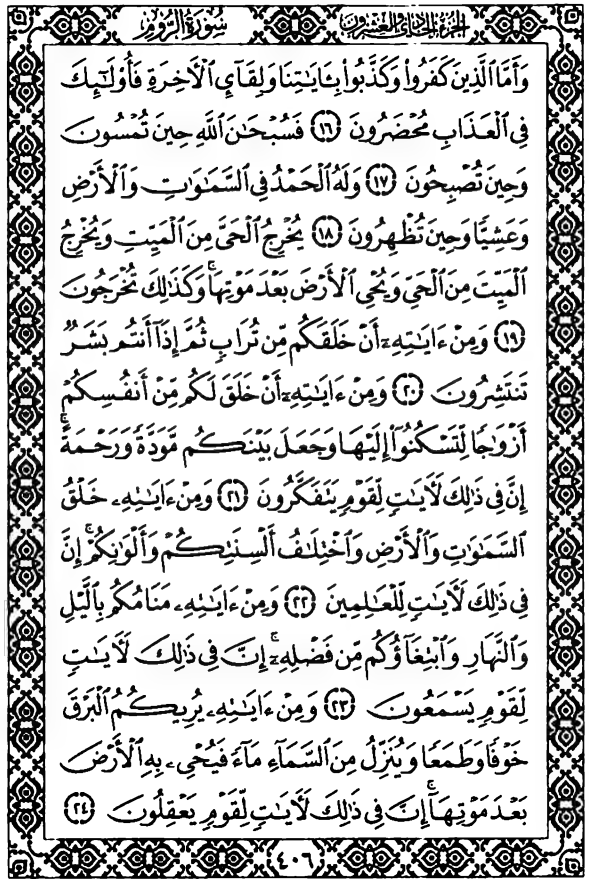 الجزء الحادي والعشرون
سُورَةُ الرُّومِ
وَأَمَّا الَّذِينَ كَفَرُوا۟ وَكَذَّبُوا۟ بِـَٔايَـٰتِنَا وَلِقَآئِ الْـَٔاخِرَةِ فَأُو۟لَـٰٓئِكَ
فِى الْعَذَابِ مُحْضَرُونَ ﴿١٦﴾ فَسُبْحَـٰنَ اللَّهِ حِينَ تُمْسُونَ
وَحِينَ تُصْبِحُونَ ﴿١٧﴾ وَلَهُ الْحَمْدُ فِى السَّمَـٰوَٰتِ وَالْأَرْضِ
وَعَشِيًّا وَحِينَ تُظْهِرُونَ ﴿١٨﴾ يُخْرِجُ الْحَىَّ مِنَ الْمَيِّتِ وَيُخْرِجُ
الْمَيِّتَ مِنَ الْحَىِّ وَيُحْىِ الْأَرْضَ بَعْدَ مَوْتِهَا ۚ وَكَذَٰلِكَ تُخْرَجُونَ
﴿١٩﴾ وَمِنْ ءَايَـٰتِهِۦٓ أَنْ خَلَقَكُم مِّن تُرَابٍ ثُمَّ إِذَآ أَنتُم بَشَرٌ
تَنتَشِرُونَ ﴿٢٠﴾ وَمِنْ ءَايَـٰتِهِۦٓ أَنْ خَلَقَ لَكُم مِّنْ أَنفُسِكُمْ
أَزْوَٰجًا لِّتَسْكُنُوٓا۟ إِلَيْهَا وَجَعَلَ بَيْنَكُم مَّوَدَّةً وَرَحْمَةً ۚ
إِنَّ فِى ذَٰلِكَ لَـَٔايَـٰتٍ لِّقَوْمٍ يَتَفَكَّرُونَ ﴿٢١﴾ وَمِنْ ءَايَـٰتِهِۦ خَلْقُ
السَّمَـٰوَٰتِ وَالْأَرْضِ وَاخْتِلَـٰفُ أَلْسِنَتِكُمْ وَأَلْوَٰنِكُمْ ۚ إِنَّ
فِى ذَٰلِكَ لَـَٔايَـٰتٍ لِّلْعَـٰلِمِينَ ﴿٢٢﴾ وَمِنْ ءَايَـٰتِهِۦ مَنَامُكُم بِالَّيْلِ
وَالنَّهَارِ وَابْتِغَآؤُكُم مِّن فَضْلِهِۦٓ ۚ إِنَّ فِى ذَٰلِكَ لَـَٔايَـٰتٍ
لِّقَوْمٍ يَسْمَعُونَ ﴿٢٣﴾ وَمِنْ ءَايَـٰتِهِۦ يُرِيكُمُ الْبَرْقَ
خَوْفًا وَطَمَعًا وَيُنَزِّلُ مِنَ السَّمَآءِ مَآءً فَيُحْىِۦ بِهِ الْأَرْضَ
بَعْدَ مَوْتِهَآ ۚ إِنَّ فِى ذَٰلِكَ لَـَٔايَـٰتٍ لِّقَوْمٍ يَعْقِلُونَ ﴿٢٤﴾
٤٠٦